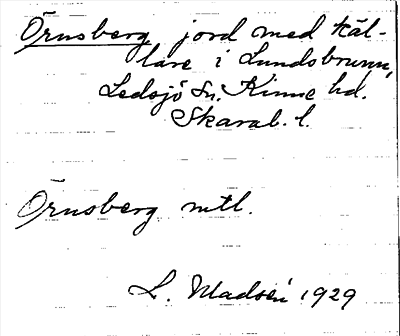 Örnsberg jord med käl-
lare i Lundsbrunn,
Ledsjö sn. Kinne hd.
Skarab. l.
Örnsberg mtl.
L. Madsén 1929